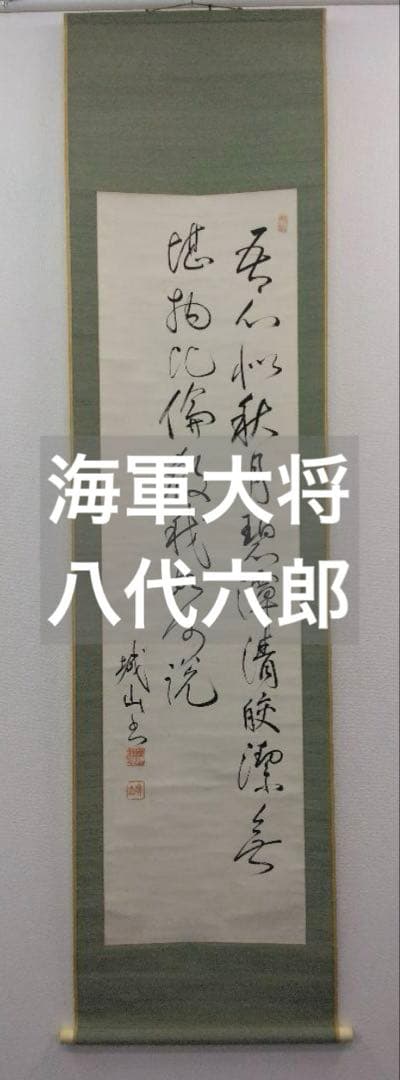 海軍大将
八代六郎
吾心似秋月碧潭清皎潔無
堪物比倫教我如何説
城山書